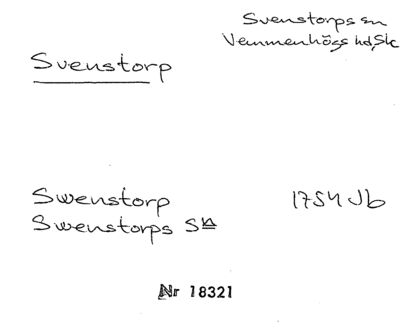 Svenstorps sn
Vemmenhögs hd, Sk
Svenstorp
Swenstorp 1754 Jb
Swenstorps Sn
Nr 18321